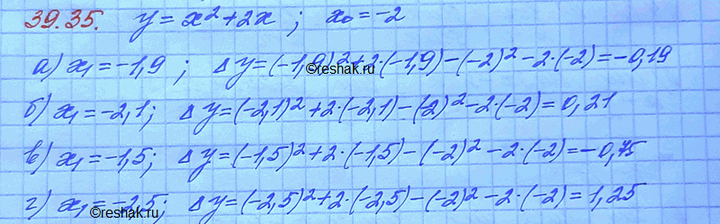 39.35. y = x² + 2x ; x₀ = -2
а) x₁ = -1,9 ; Δy = (-1,9)² + 2·(-1,9) - (-2)² - 2·(-2) = -0,19
©reshak.ru
б) x₁ = -2,1; Δy = (-2,1)² + 2·(-2,1) - (-2)² - 2·(-2) = 0,21
в) x₁ = -1,5; Δy = (-1,5)² + 2·(-1,5) - (-2)² - 2·(-2) = -0,75
г) x₁ = -2,5; Δy = (-2,5)² + 2·(-2,5) - (-2)² - 2·(-2) = 1,25
©reshak.ru